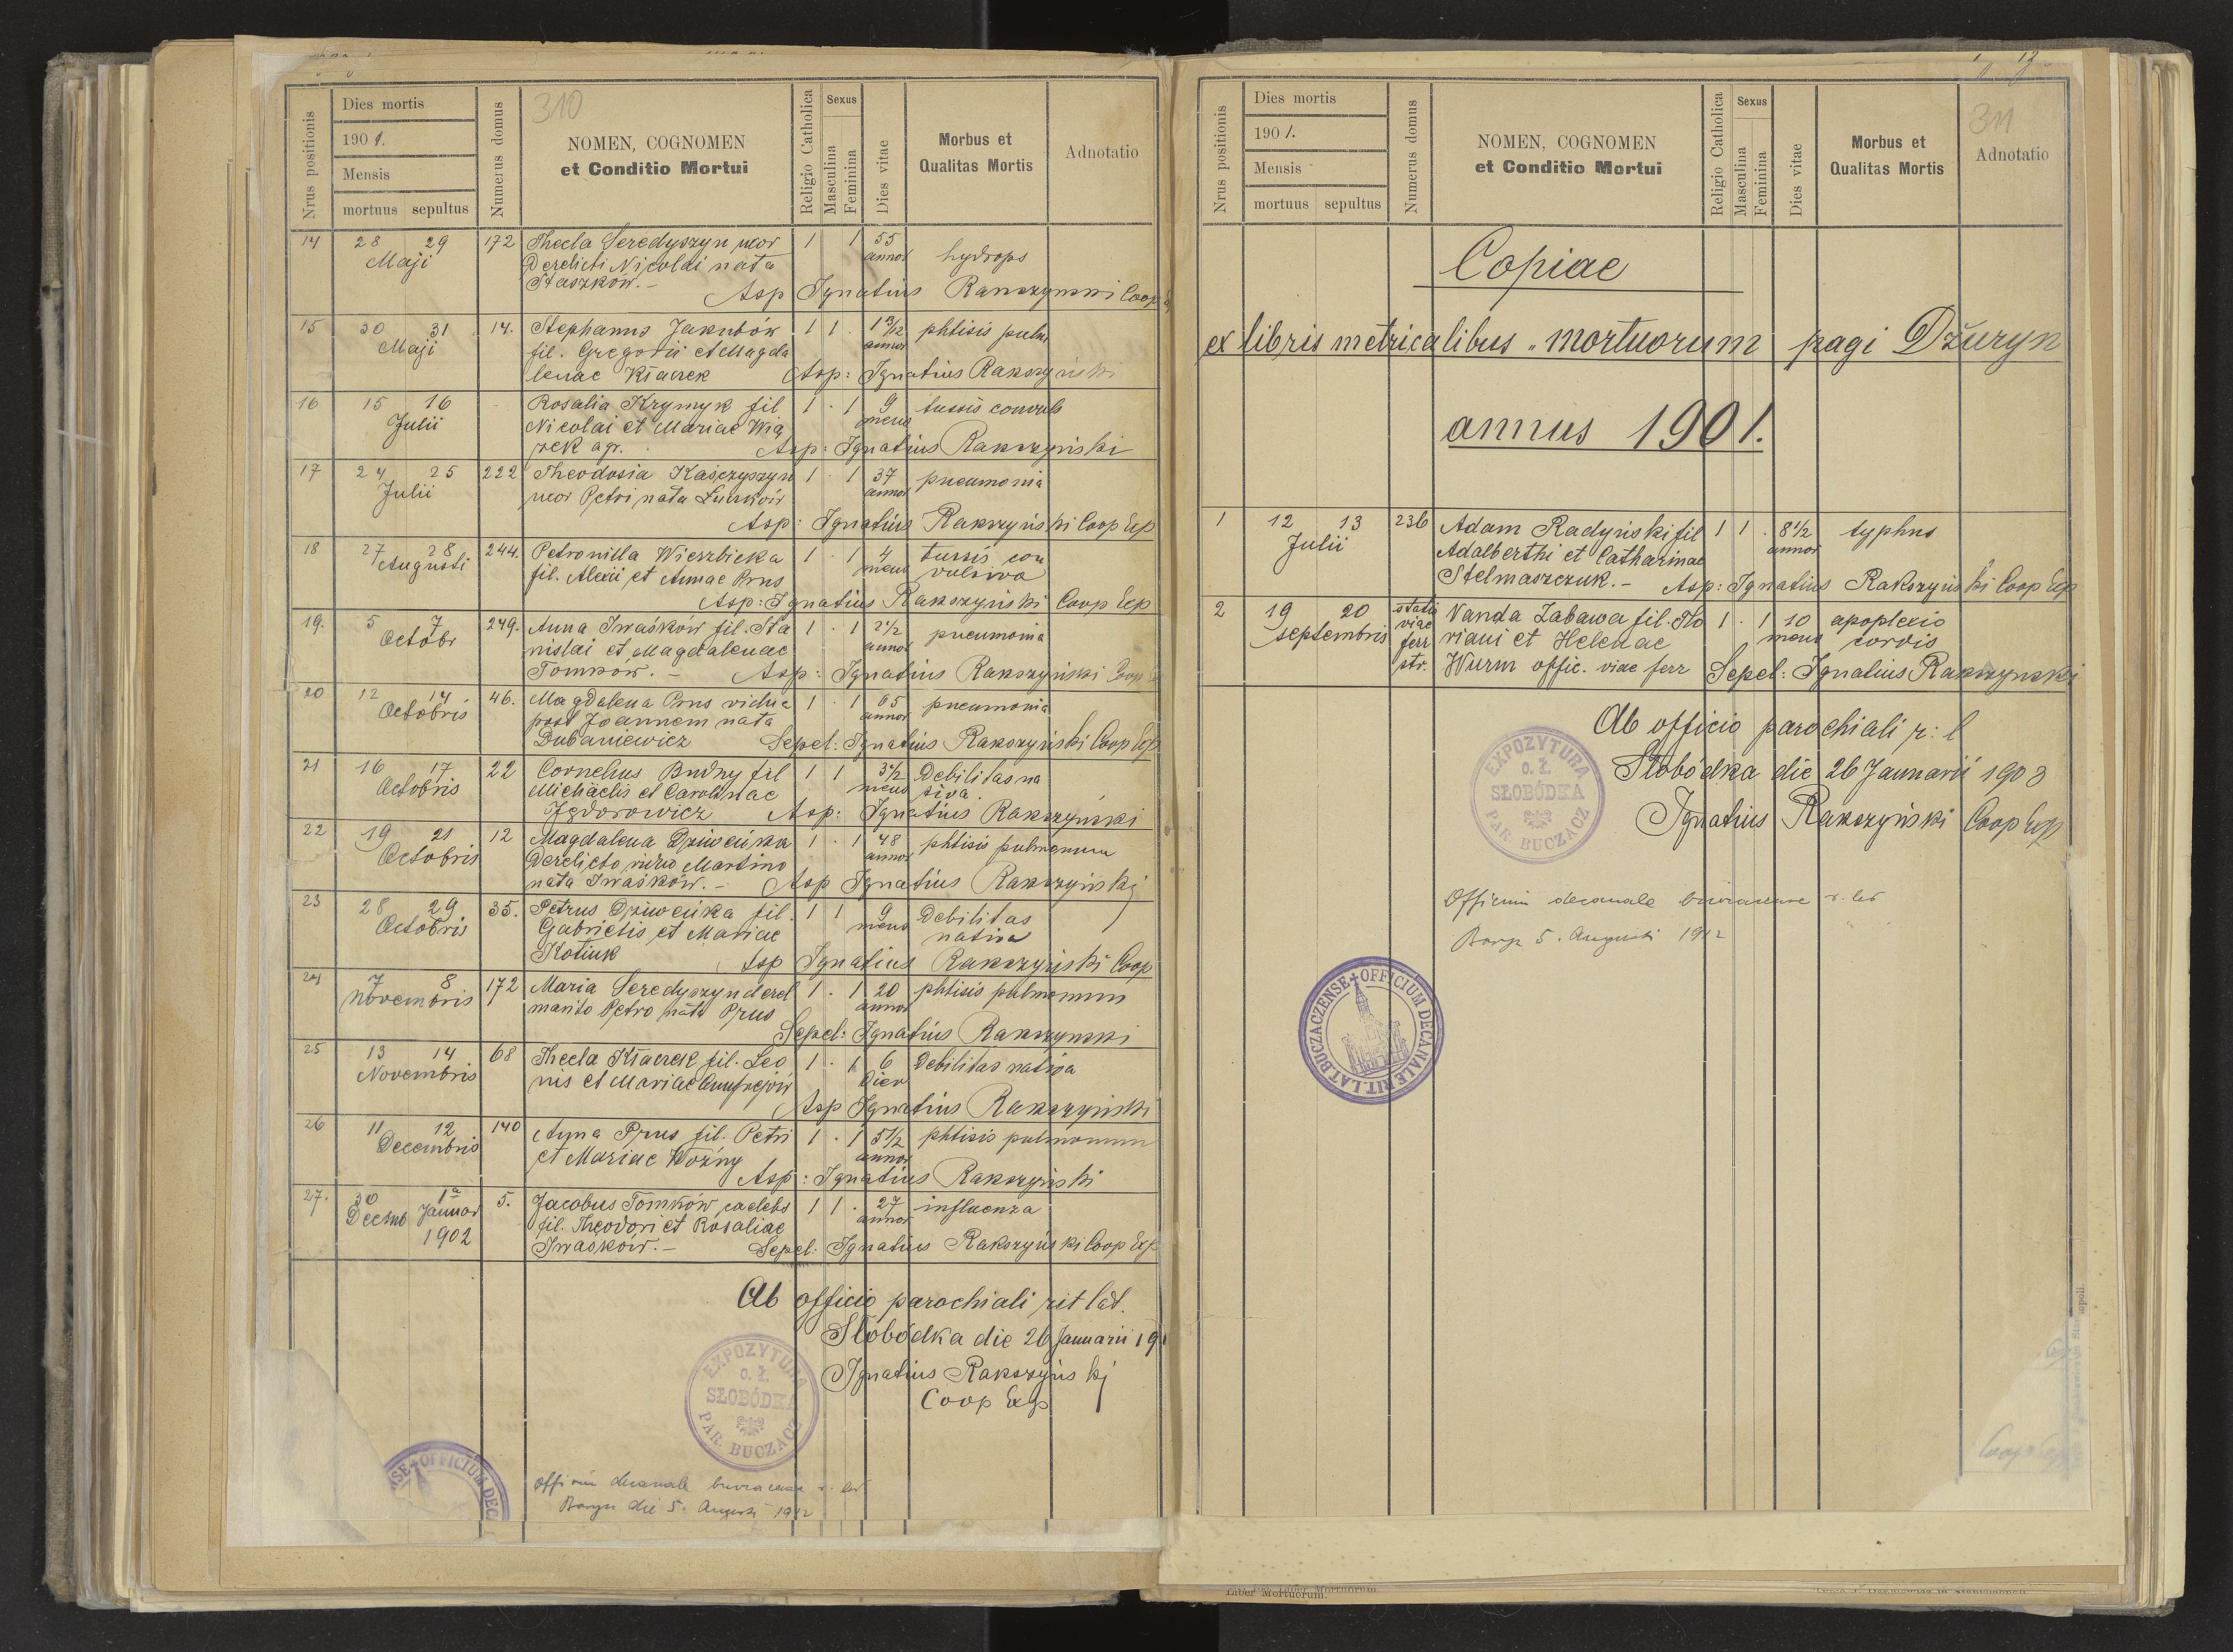 310
Nrus positionis
Dies mortis
1901.
Mensis
mortuus sepultus
Numerus domus
NOMEN, COGNOMEN
et Conditio Mortui
Religio Catholica
Sexus
Masculina
Feminina
Dies vitae
Morbus et
Qualitas Mortis
Adnotatio
14 28 29 172 Thecla Seredyszyn uxor 1 . 1 55
Maji Derelicti Nicolai nata annor hydrops
Staszków.-
Asp Ignatius Rakszynski Coop
15 30 31 14. Stephanus Jakubów 1 1 . phtisis pulm
Maji fil. Gregorii et Magda annor
lenae Kłaczek Asp: Ignatius Rakszyński
16 15 16 - Rosalia Krymyk fil 1 . 1 9 tussis convuls
Julii Nicolai et Mariae Wią mens
zek agr. Asp: Ignatius Rakszyński
17 24 25 222 Theodosia Kaszczyszyn 1 . 1 37 pneumonia
Julii uxor Petri nata annor
Asp: Ignatius Rakszyński Coop Exp
18 27 28 244. Petronilla Wierzbicka 1 . 1 4 tussis con
Augusti fil. Alexii et Annae Prus mens vulsiva
Asp: Ignatius Rakszyński Coop Exp
19. 5 7 249. Anna Iwaśków fil. Sta 1 . 1 2 1/2 pneumonia
Octobr nislai et Magdalenae annor
Tomków.- Asp: Ignatius Rakszyński Coop
20 12 14 46. Magdalena Prus vidua 1 . 1 65 pneumonia
Octobris post Joannem nata annor
Dubaniewicz Sepel: Ignatius Rakszyński Coop Exp
21 16 17 22 Cornelius Budny fil 1 1 3 1/2 Debilitas na
Octobris Michaelis et Carolinae mens tiva.
Asp: Ignatius Rakszyński
22 19 21 12 Magdalena Dziweńka 1 . 1 48 phtisis pulmonum
Octobris Derelicto viduo Martino annor
nata Iwaśków.- Asp Ignatius Rakszyński
23 28 29 35. Petrus Dziweńka fil. 1 1 9 Debilitas
Octobris Gabrielis et Mariae mens nativa
Kotiuk Asp Ignatius Rakszyński Coop
24 7 8 172 Maria Seredyszyn derel 1 . 1 20 phtisis pulmonum
Novembris marito Petro nata Prus annor
Sepel: Ignatius Rakszynski
25 13 14 68 Thecla Kłaczek fil. Leo 1 . 1 6 Debilitas nativa
Novembris nis et Mariae dier
Asp Ignatius Rakszyński
26 11 12 140 Anna Prus fil. Petri 1 . 1 5 1/2 phtisis pulmonum
Decembris et Mariae Woźny annor
Asp: Ignatius Rakszyński
27. 30 1a 5. Jacobus Tomków caelebs 1 1 . 27 influenza
Decemb Januar fil. Theodori et Rosaliae annor
1902 Iwaśków.- Sepel: Ignatius Rakszyński Coop Exp
Ab officio parochiali rit lat.
Słobódka die 26 Januarii 19
Ignatius Rakszyński
Coop Exp
EXPOZYTURA
O. Ł.
SŁOBÓDKA
PAR. BUCZACZ
OFFICIUM DEC
die 5. Augusti 1912
311
Nrus positionis
Dies mortis
1901.
Mensis
mortuus sepultus
Numerus domus
NOMEN, COGNOMEN
et Conditio Mortui
Religio Catholica
Sexus
Masculina
Feminina
Dies vitae
Morbus et
Qualitas Mortis
Adnotatio
Copiae
ex libris metricalibus „mortuorum pagi Džuryn
annus 1901.
1 12 13 236 Adam Radyński fil 1 1 . 8 1/2 typhus
Julii Adalberthi et Catharinae annor
Stelmaszczuk.- Asp: Ignatius Rakszyński Coop Exp
2 19 20 statio Vanda Zabawa fil. Flo 1 . 1 10 apoplexio
septembris viae riani et Helenae mens cordis
ferr
str. Wurm offic. viae ferr Sepel: Ignatius Rakszynski
Ab officio parochiali r: l
Słobódka die 26 Januarii 1903
Ignatius Rakszyński Coop Exp
EXPOZYTURA
O. Ł.
SŁOBÓDKA
PAR. BUCZACZ
Officium decanale r. lat
5. Augusti 1912
OFFICIUM DECANALE RIT. LAT. BUCZACZENSE
Liber Mortuorum.